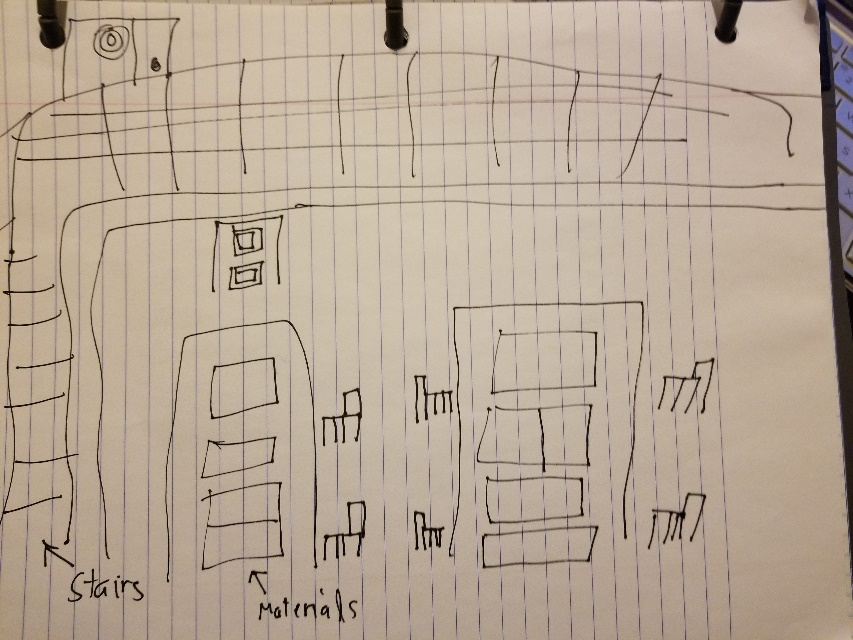 Stairs
Materials